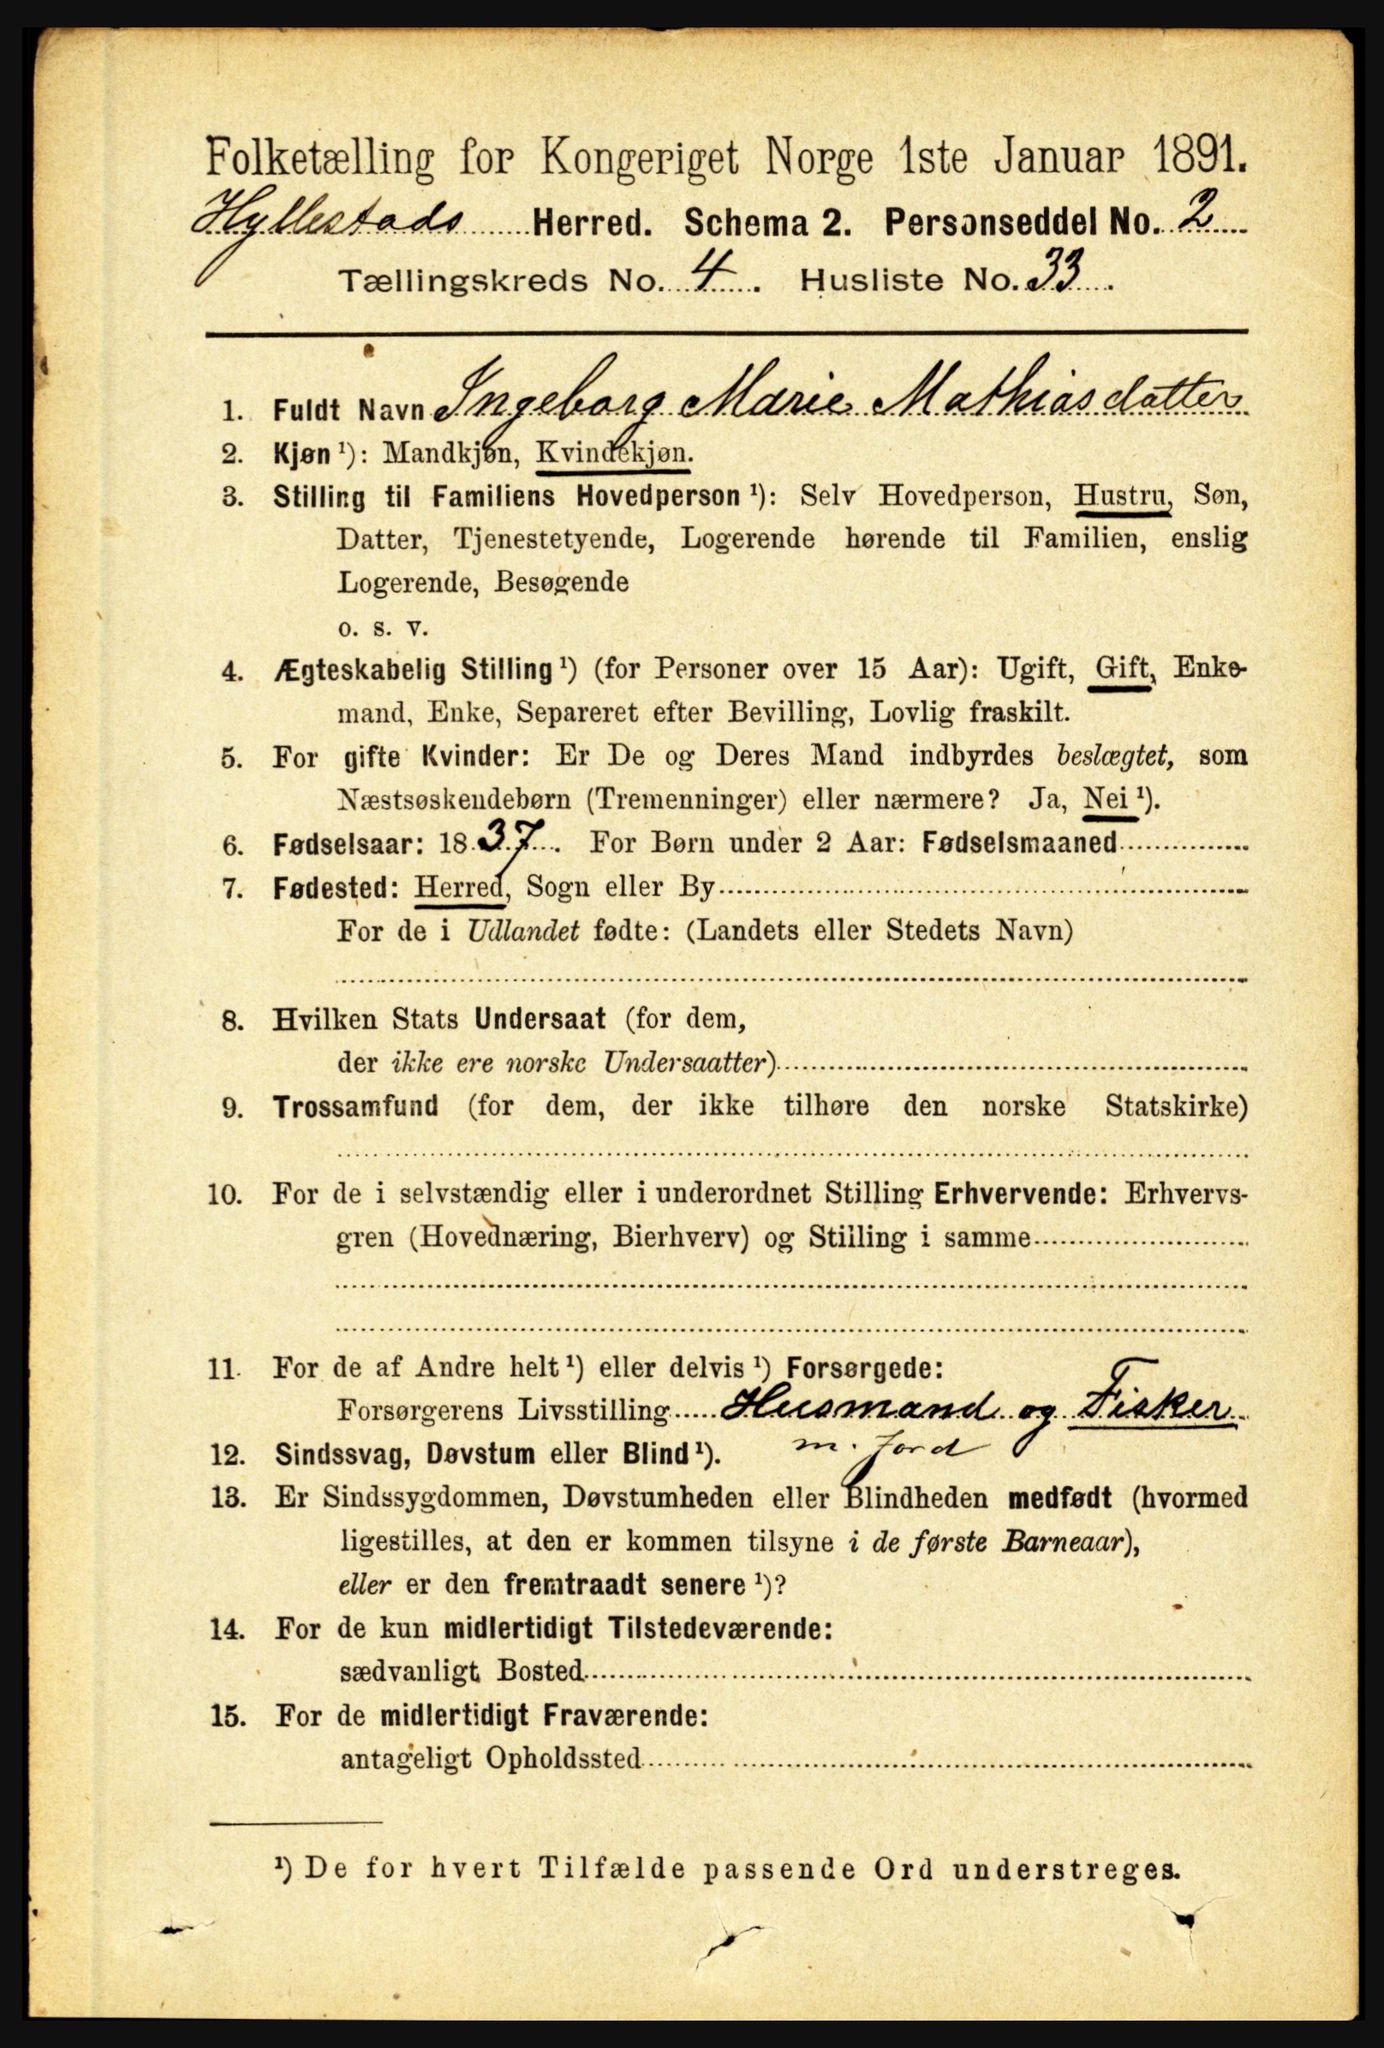 Folketælling for Kongeriget Norge 1ste Januar 1891.
Hyllestads Herred. Schema 2. Personseddel No. 2
Tællingskreds No. 4. Husliste No. 33.
1. Fuldt Navn Ingeborg Marie Mathiasdatter
2. Kjøn ¹): Mandkjøn, Kvindekjøn.
3. Stilling til Familiens Hovedperson ¹): Selv Hovedperson, Hustru, Søn,
Datter, Tjenestetyende, Logerende hørende til Familien, enslig
Logerende, Besøgende
o. s. v.
4. Ægteskabelig Stilling ¹) (for Personer over 15 Aar): Ugift, Gift, Enke-
mand, Enke, Separeret efter Bevilling, Lovlig fraskilt.
5. For gifte Kvinder: Er De og Deres Mand indbyrdes beslægtet, som
Næstsøskendebørn (Tremenninger) eller nærmere? Ja, Nei ¹).
6. Fødselsaar: 1837. For Børn under 2 Aar: Fødselsmaaned
7. Fødested: Herred, Sogn eller By
For de i Udlandet fødte: (Landets eller Stedets Navn)
8. Hvilken Stats Undersaat (for dem,
der ikke ere norske Undersaatter)
9. Trossamfund (for dem, der ikke tilhøre den norske Statskirke)
10. For de i selvstændig eller i underordnet Stilling Erhvervende: Erhvervs-
gren (Hovednæring, Bierhverv) og Stilling i samme
11. For de af Andre helt ¹) eller delvis ¹) Forsørgede:
Forsørgerens Livsstilling Husmand og Fisker
m. jord
12. Sindssvag, Døvstum eller Blind ¹).
13. Er Sindssygdommen, Døvstumheden eller Blindheden medfødt (hvormed
ligestilles, at den er kommen tilsyne i de første Barneaar),
eller er den fremtraadt senere ¹)?
14. For de kun midlertidigt Tilstedeværende:
sædvanligt Bosted
15. For de midlertidigt Fraværende:
antageligt Opholdssted
¹) De for hvert Tilfælde passende Ord understreges.